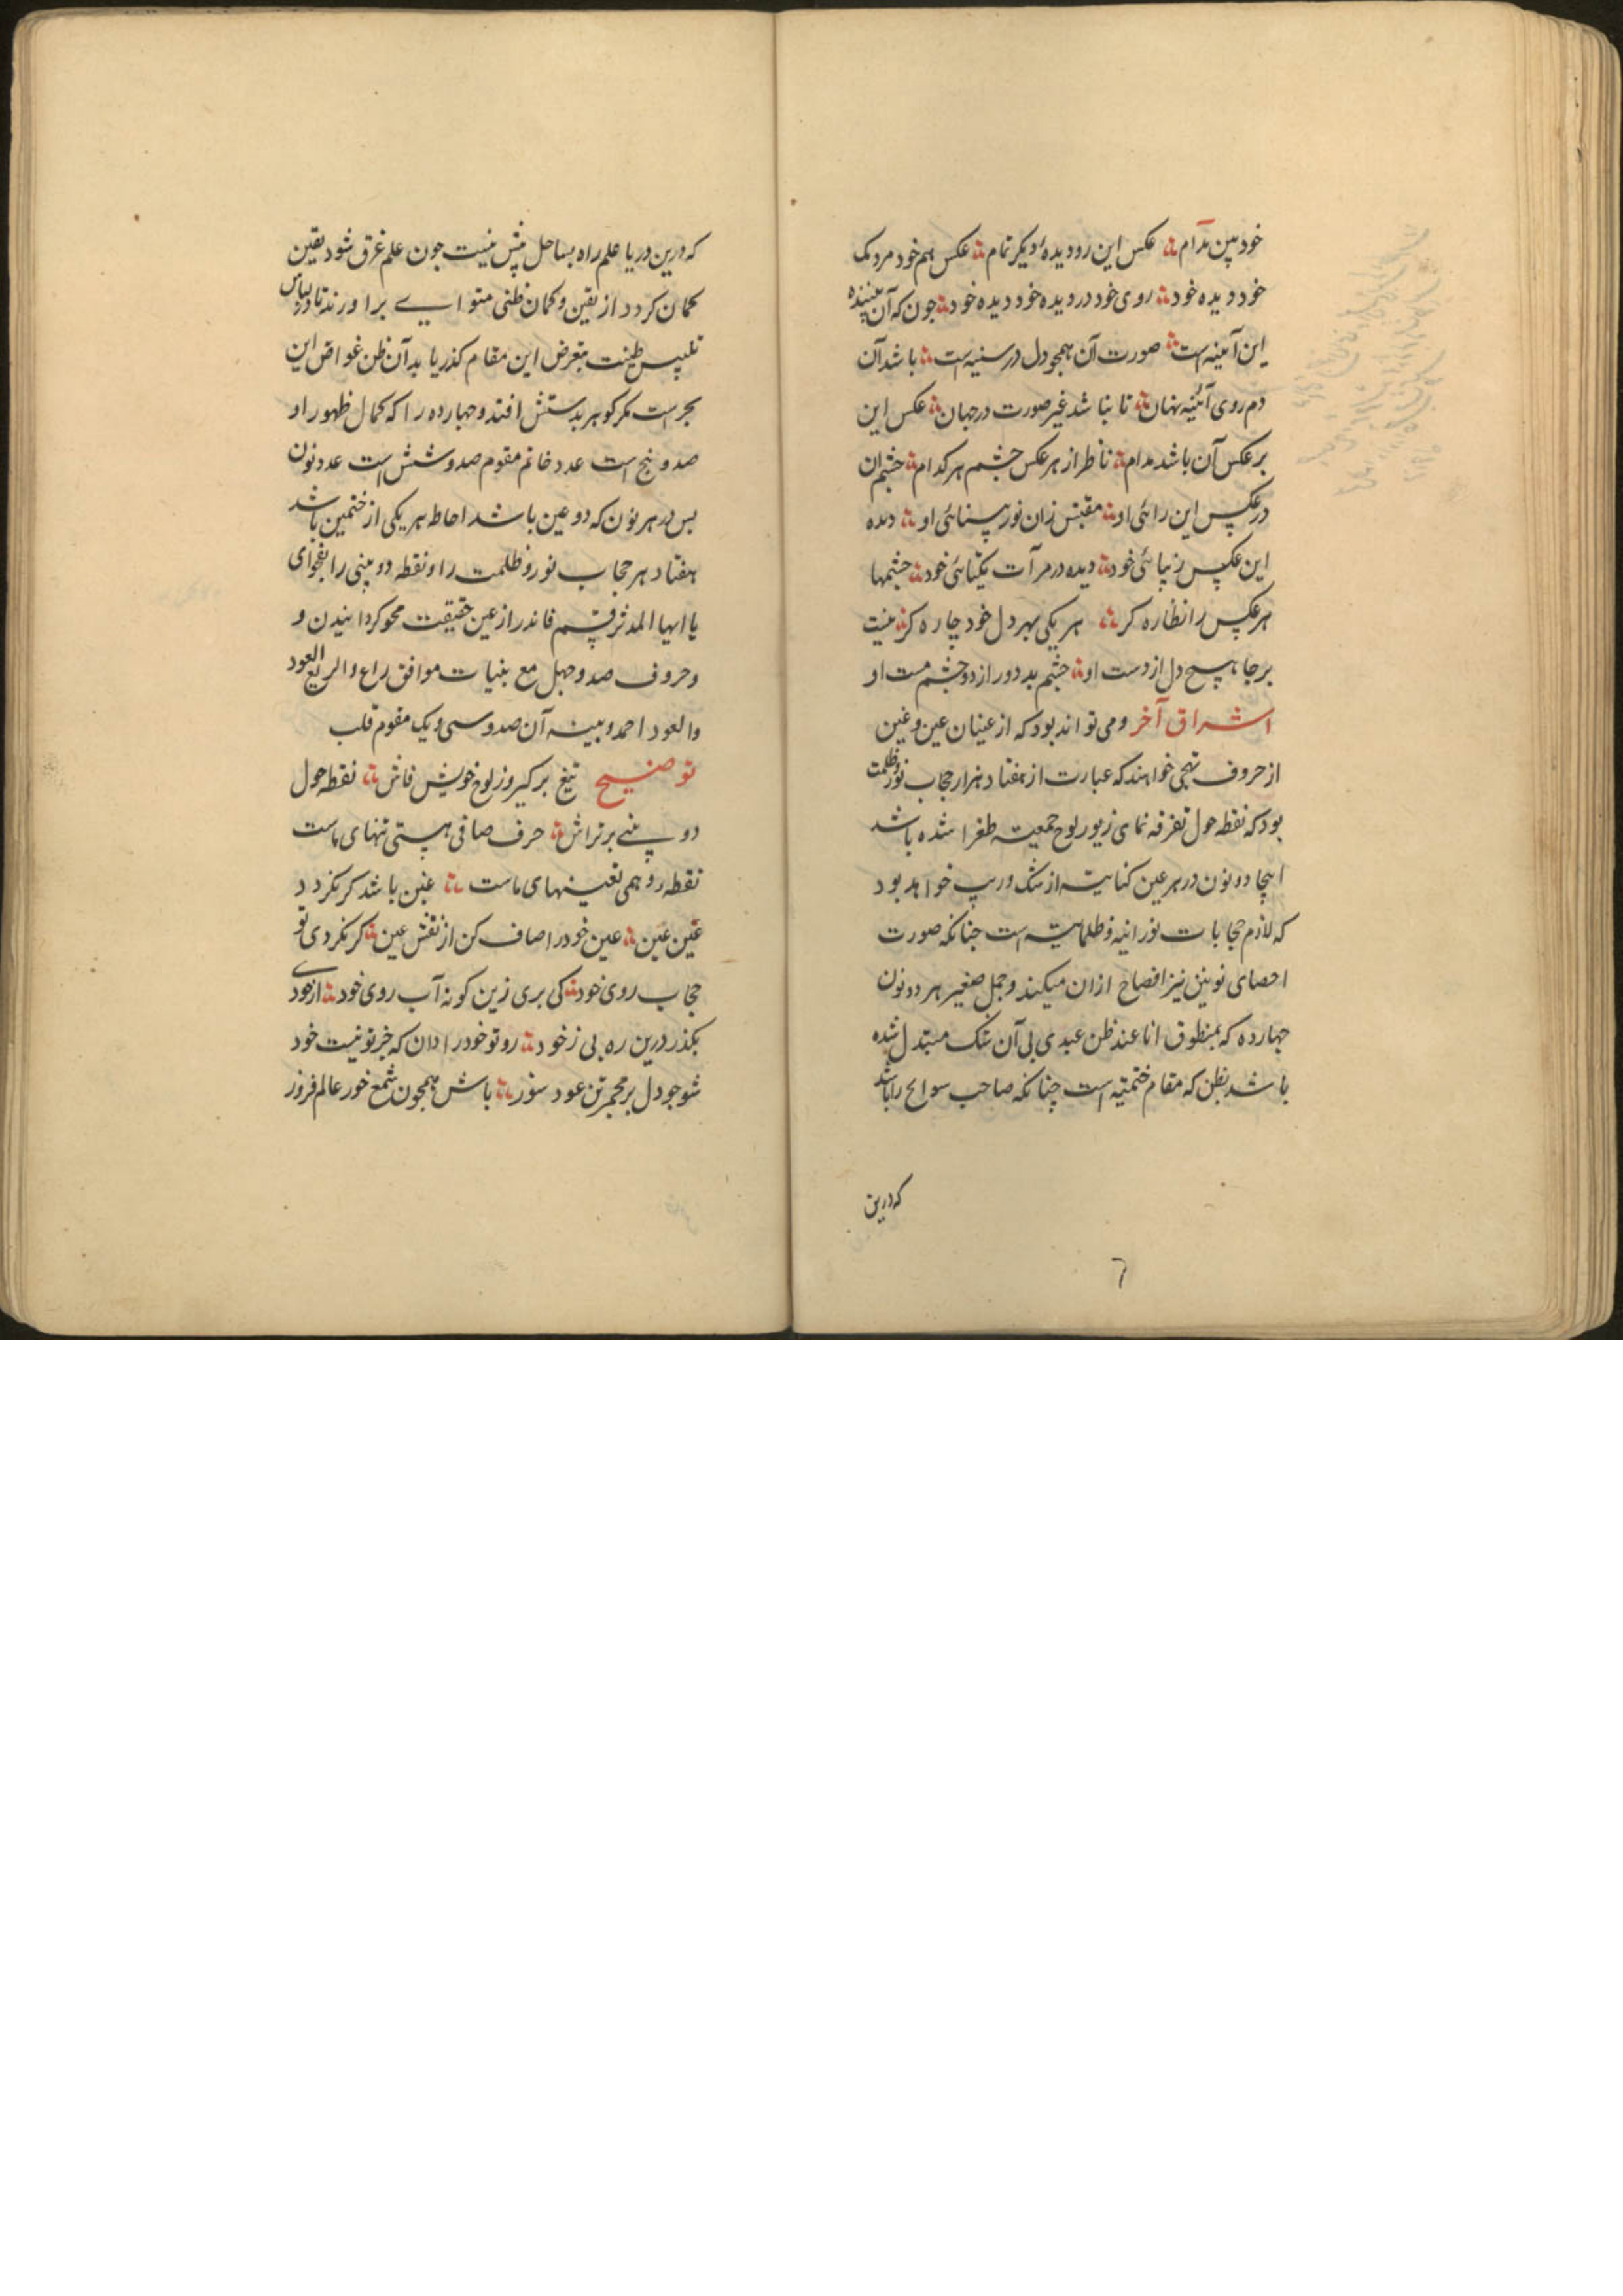 خود بین مدام ؞ عکس این رو دیدهٔ دیکر تمام ؞ عکس هم خود مردمک
خود دیده خود ؞ روی خود در دیده خود دیده خود ؞ جون که آن بیننده
این آینه است ؞ صورت آن همجو دل در سینه است ؞ باشد آن
دم روی آئینه نهان ؞ تا نباشد غیر صورت در جهان ؞ عکس این
بر عکس آن باشد مدام ؞ ناظر از هر عکس جشم هر کدام ؞ جشم ان
در عکس این رائی او ؞ مقتبس زان نور بینائی او ؞ دیده
این عکس زیبائی خود ؞ دیده در مرآت یکتائی خود ؞ جشمها
هر عکس را نظاره کر ؞ هر یکی بهر دل خود چاره کر ؞ نیست
بر جا هیچ دل از دست او ؞ جشم بد دور از دو جشم مست او
اشراق آخر و می تواند بود که از عینان عین و غین
از حروف تهجی خواهند که عبارت از هفتاد هزار حجاب نور و ظلمت
بود که نقطه حول تفرقه نمای زیور لوح جمعیت طغرا شده باشد
اینجا دو نون در هر عین کنایت از شک و ریب خواهد بود
که لازم حجابات نورانیه و ظلمانیه است جنانکه صورت
احصای نونین نیز افصاح ازان میکند و جمل صغیر هر دو نون
جهارده که بمنطوق انا عند ظن عبدی بی آن شک مبتدل شده
باشد بظن که مقام ختمیه است چنانکه صاحب سوانح را باشد
که درین
٦
که درین دریا علم راه بساحل بیش نیست جون علم غرق شود یقین
کمان کردد از یقین و کمان ظنی متواری برآورند تا در لباس
تلبیس ظینت بتعرض این مقام کذر یابد آن ظن غواص این
بحر است مکر کوهر بدستش افتد و جهارده را که کمال ظهور او
صد و پنج است عدد خاتم مقوم صد و شش است عدد نون
بس در هر نون که دو عین باشد احاطه هر یکی از ختمین باشد
هفتاد هر حجاب نور و ظلمت را و نقطه دو بینی را بفحوای
یا ایها المدثر قم فانذر از عین حقیقت محو کردانیدن و
و حروف صد و جهل مع بینات موافق راع و الربع العود
والعود احمد و بینه آن صد و سی و یک مقوم قلب
توضیح تیغ برکیر و ز لوح خویش فاش ؞ نقطه حول
دو بینی بر تراش ؞ حرف صافی هستی تنهای ماست
نقطه وهمی تعینهای ماست ؞ غین باشد کر نکردد
غین عین ؞ عین خود را صاف کن از نقش عین ؞ کر نکردی تو
حجاب روی خود ؞ کی بری زین کونه آب روی خود ؞ از خودی
بکذر درین ره بی ز خود ؞ رو تو خود را دان که جز تو نیست خود
شو جو دل بر مجمر تن عود سوز ؞ باش همجون شمع خور عالم فروز